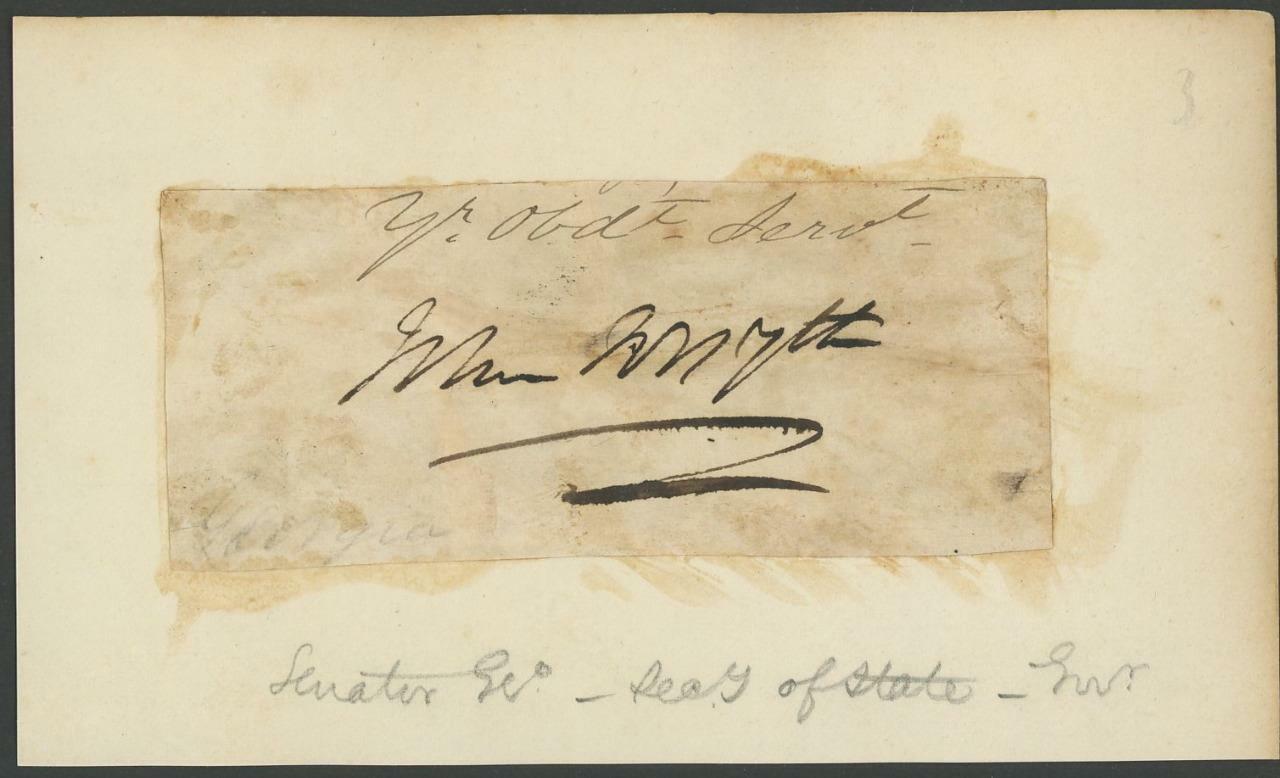 3
Yr. Obdt- Servt-
John Forsyth
Georgia
Senator Geo - Secy of State - Govr